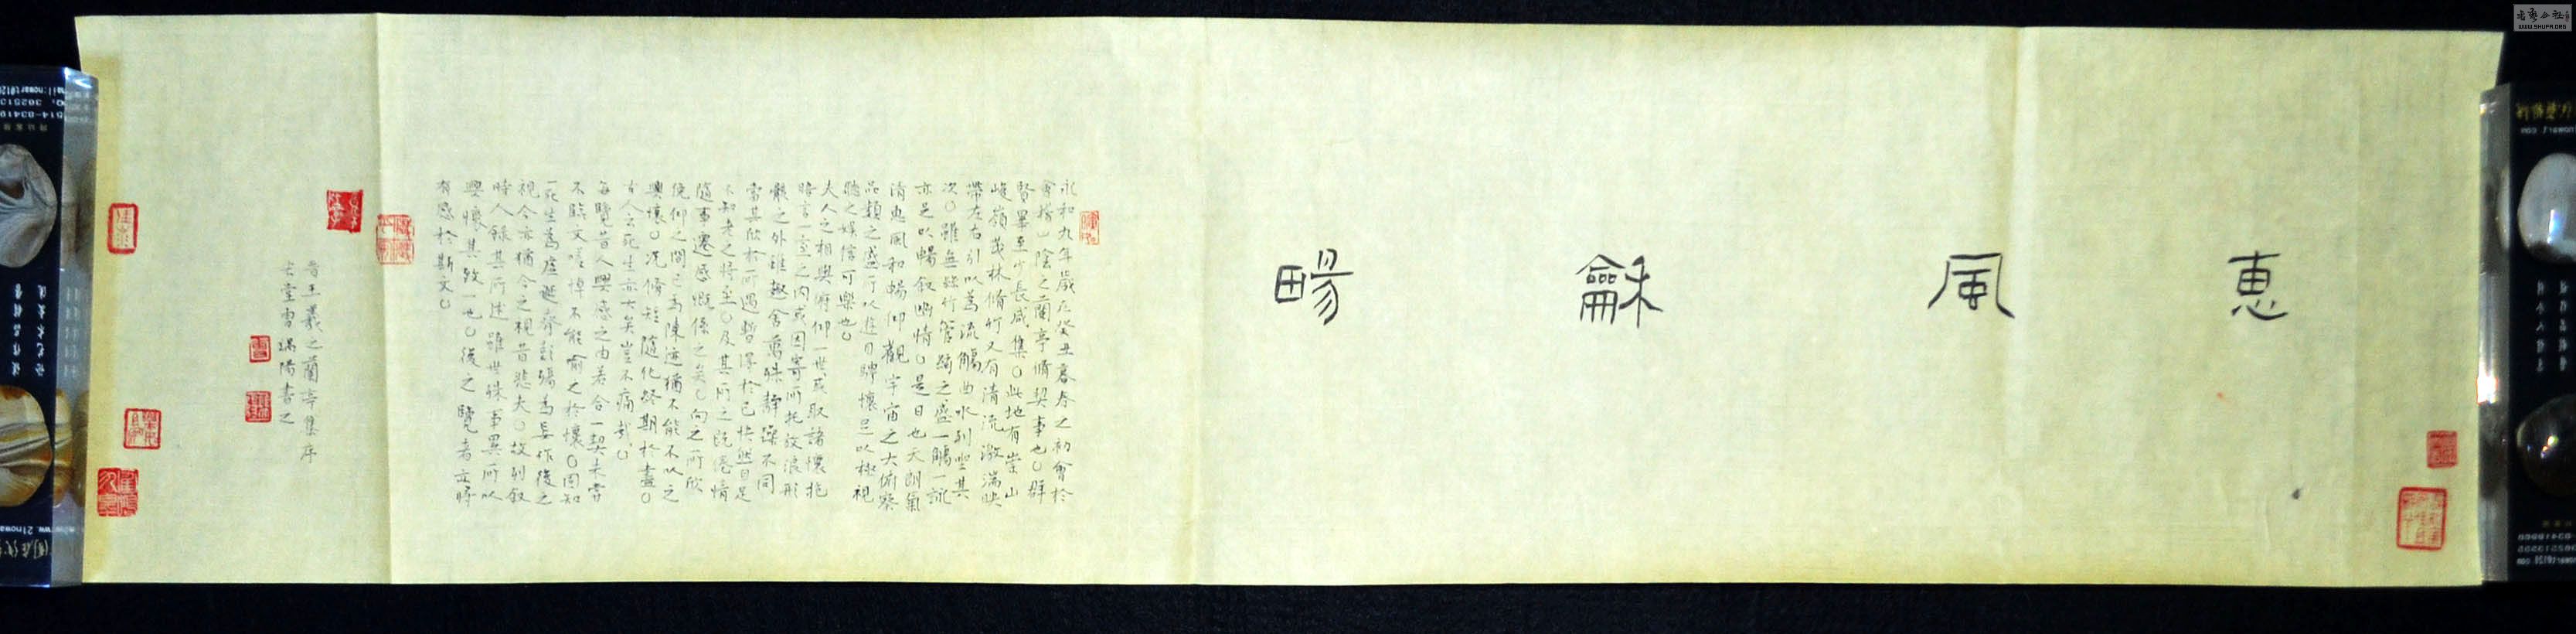 惠風龢暢
永和九年歲在癸丑暮春之初會於
會稽山陰之蘭亭脩契事也〇群
賢畢至少長咸集〇此地有崇山
峻嶺茂林脩竹又有清流激湍映
帶左右引以為流觴曲水列坐其
次〇雖無絲竹管弦之盛一觴一詠
亦足以暢叙幽情〇是日也天朗氣
清惠風和暢仰觀宇宙之大俯察
品類之盛所以遊目騁懷足以極視
聽之娛信可樂也〇
夫人之相與俯仰一世或取諸懷抱
晤言一室之內或因寄所托放浪形
骸之外雖趣舍萬殊靜躁不同
當其欣於所遇暫得於己快然自足
不知老之將至〇及其所之既倦情
隨事遷感慨係之矣〇向之所欣
俛仰之間已為陳迹猶不能不以之
興懷〇況脩短隨化終期於盡〇
古人云死生亦大矣豈不痛哉〇
每覽昔人興感之由若合一契未嘗
不臨文嗟悼不能喻之於懷〇固知
一死生為虛誕齊彭殤為妄作後之
視今亦猶今之視昔悲夫〇故列叙
時人錄其所述雖世殊事異所以
興懷其致一也〇後之覽者亦將
有感於斯文〇
晉王羲之蘭亭集序
雪瑞陽書之
WWW.SHUFA.ORG